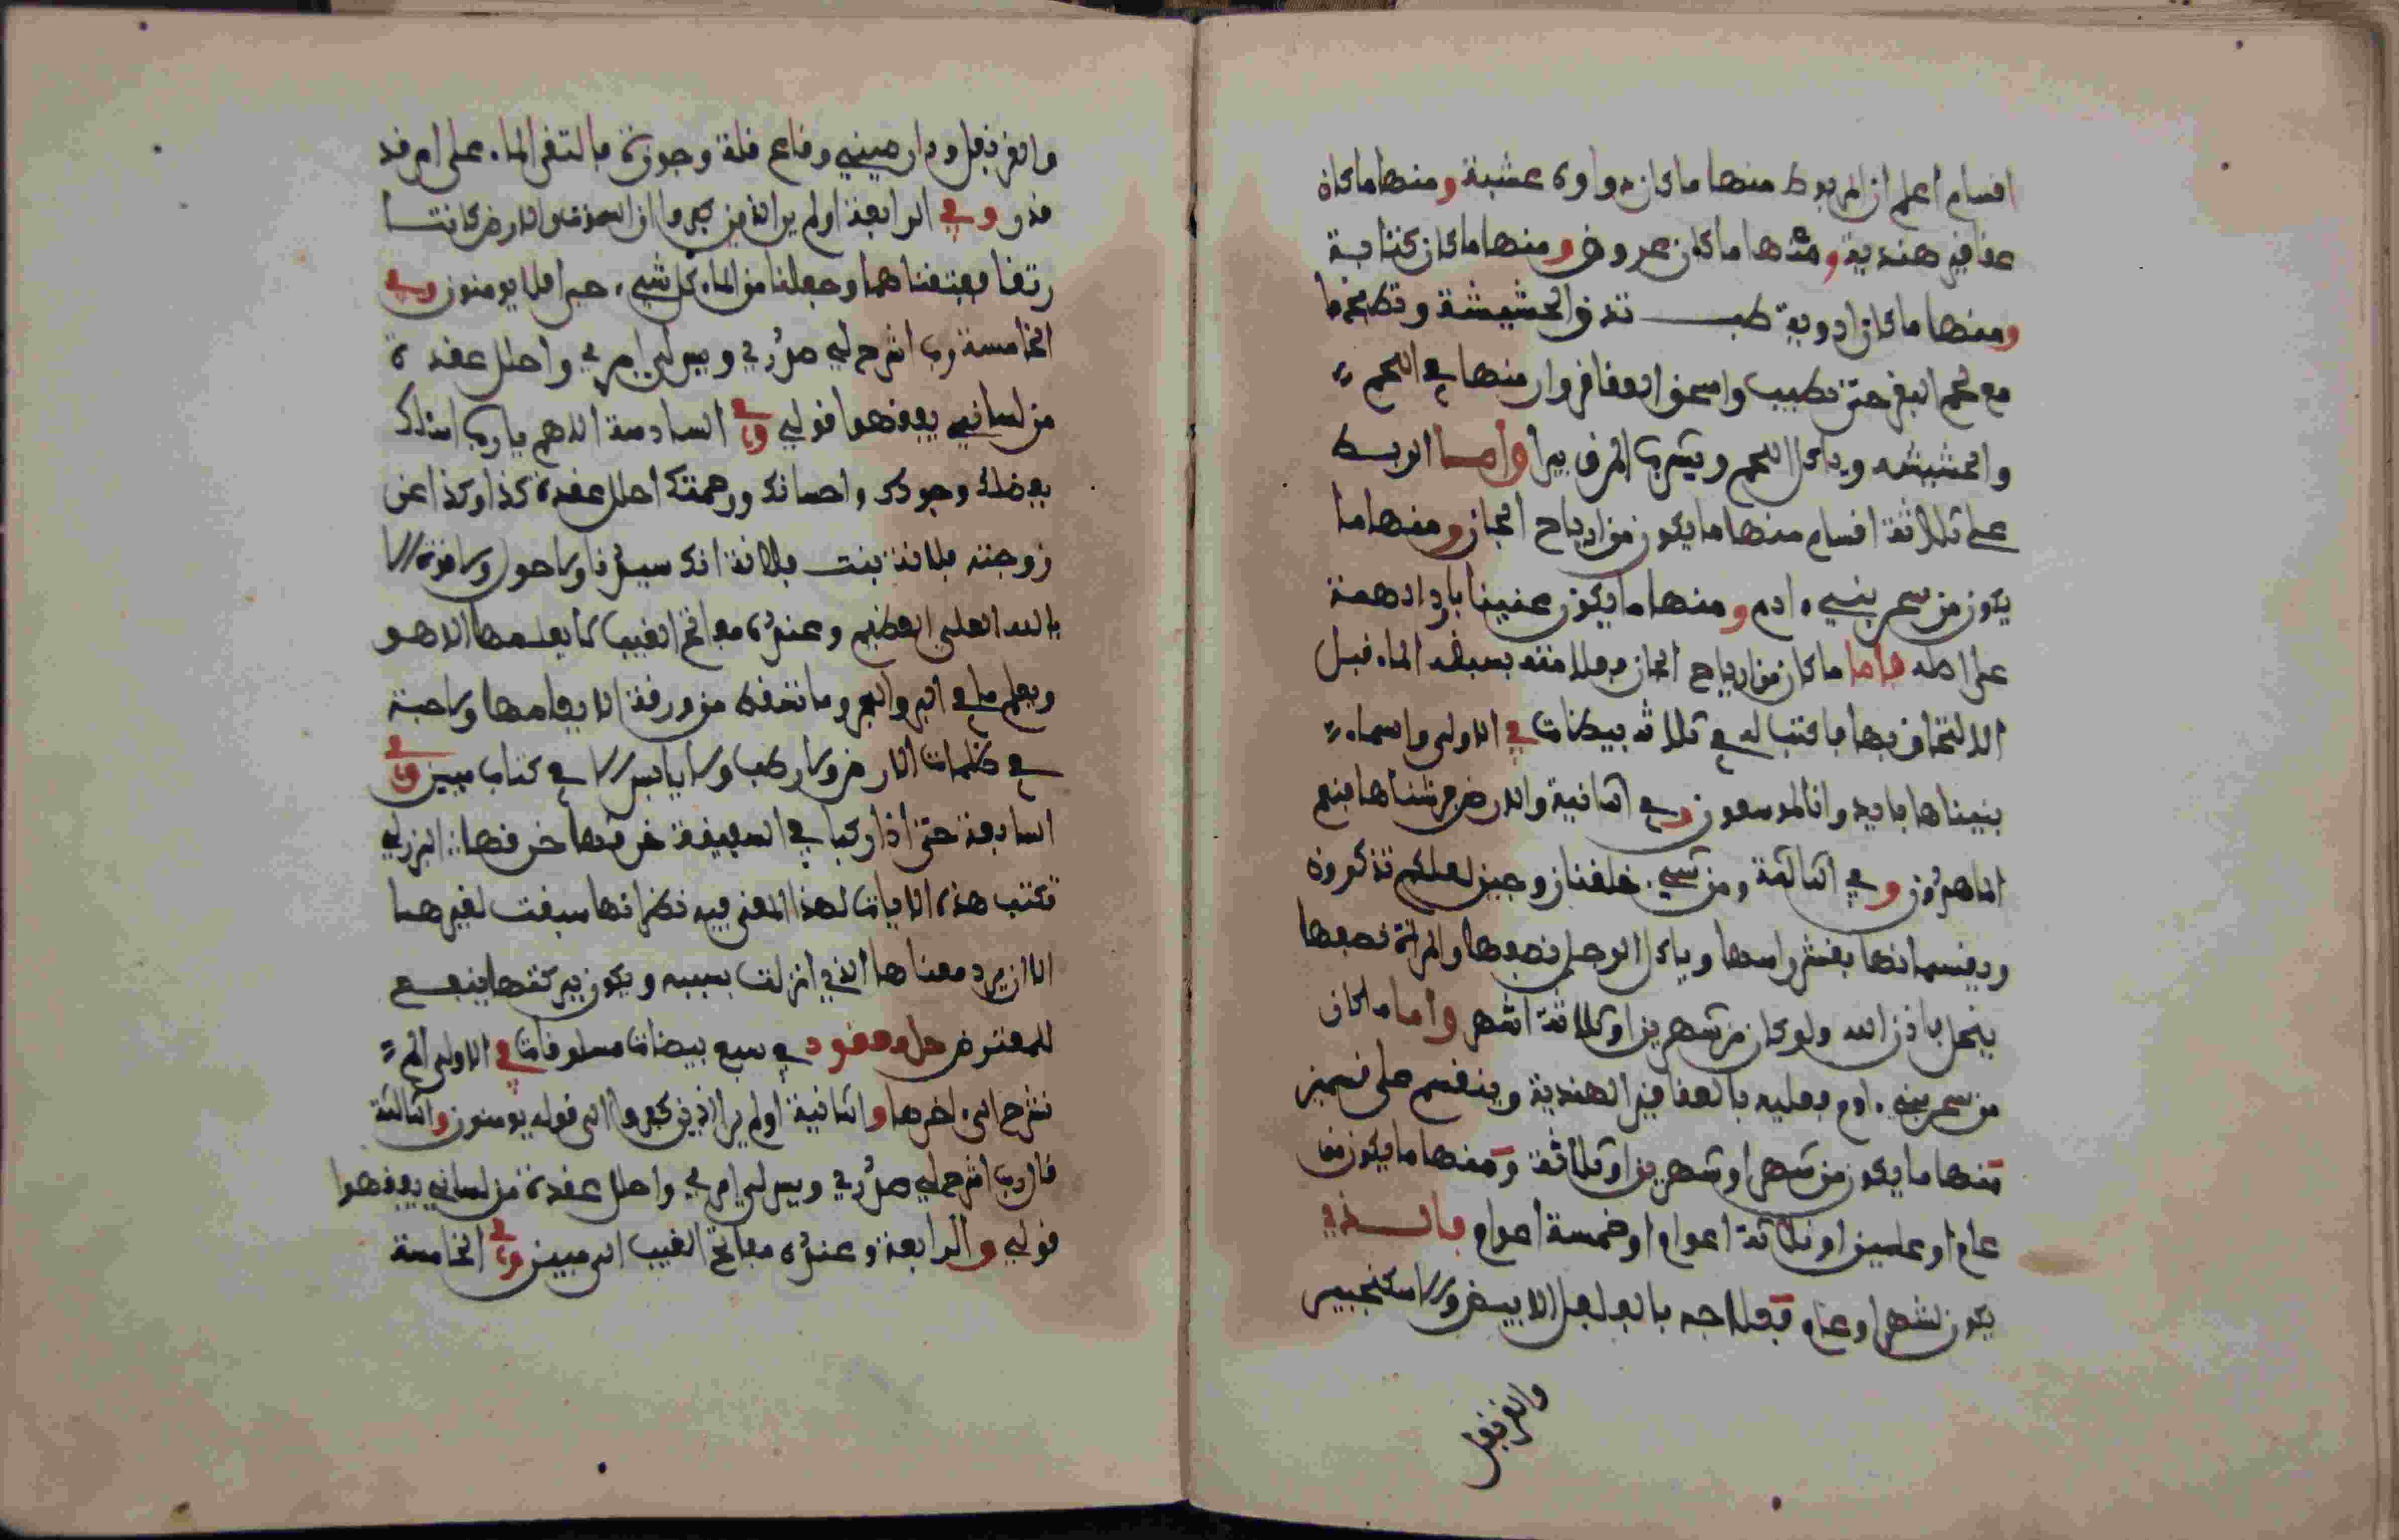 افسام اعلم ان المربوط منها ما كان دواوه عشبة ومنها ما كان
عفافير هندية ومنها ما كان عروض ومنها ما كان كتابة
ومنها ما كان ادوية طب تدق الحشيشة وتطبخها
مع لحم البفر حتى تطيب واسحق العفافر وارمنها في اللحم
والحشيشه وياكل اللحم ويشرب المرق يبرا واما الربط
على ثلاثة افسام منها ما يكون من ارياح الجان ومنها ما
يكون من سحر بني ادم ومنها ما يكون عنينا بارد الهمة
على اهله فاما ما كان من ارياح الجان فعلامته يسبفه الماء فبل
الالتحاف بها فاكتب له في ثلاثه بيضات في الاولى والسماء
بنيناها بايد وانا لموسعون وفي الثانية والارض فرشناها فنعم
الماهدون وفي الثالثة ومن كل شيء خلفنا زوجين لعلكم تذكرون
ويفسمانها بفشر راسها وياكل الرجل نصفها والمراة نصفها
ينحل باذن الله ولو كان من شهرين او ثلاثة اشهر واما ما كان
من سحر بني ادم فعليه بالعفافير الهندية وينفسم على فسمين
منها ما يكون من شهر او شهرين او ثلاثة ومنها ما يكون من
عام او عامين او ثلاثة اعوام او خمسة اعوام فالذي
يكون لشهر او عام فعلاجه بالفلفل الابيض والاسكنجبير
والفرنفل
والفرنفل ودارصيني وفاع فلة وجوزة فالتفى الماء على امر فد
فدر وفي الرابعة اولم ير الذين كفروا ان السموت والارض كانتا
رتفا ففتفناهما وجعلنا من الماء كل شيء حي افلا يومنون وفي
الخامسة رب اشرح لي صدري ويسر لي امري واحلل عفدة
من لساني يففهوا فولي وفي السادسة اللهم يارب اسئلك
بفضلك وجودك واحسانك ورحمتك احلل عفدة كذا وكذا عن
زوجته فلانة بنت فلانة انك سميع ولا حول ولا فوة الا
بالله العلي العظيم وعنده مفاتح الغيب لا يعلمها الا هو
ويعلم ما في البر والبحر وما تسفط من ورفة الا يعلمها ولا حبة
في ظلمات الارض ولا رطب ولا يابس الا في كتاب مبين وفي
السابعة حتى اذا ركبا في السفينة خرفها خرفها
تكتب هذه الايات لهذا المعنى فيه نظر انها سيفت لغيرها
الا ان يرد معناها الذي انزلت بسببه ويكون ببركتها ينفع
للمعترض حل معفود في سبع بيضات مسلوفات في الاولى الم
نشرح الى اخرها والثانية اولم ير الذين كفروا الى فوله يومنون والثالثة
فال رب اشرح لي صدري ويسر لي امري واحلل عفدة من لساني يففهوا
فولي والرابعة وعنده مفاتح الغيب الى مبين وفي الخامسة